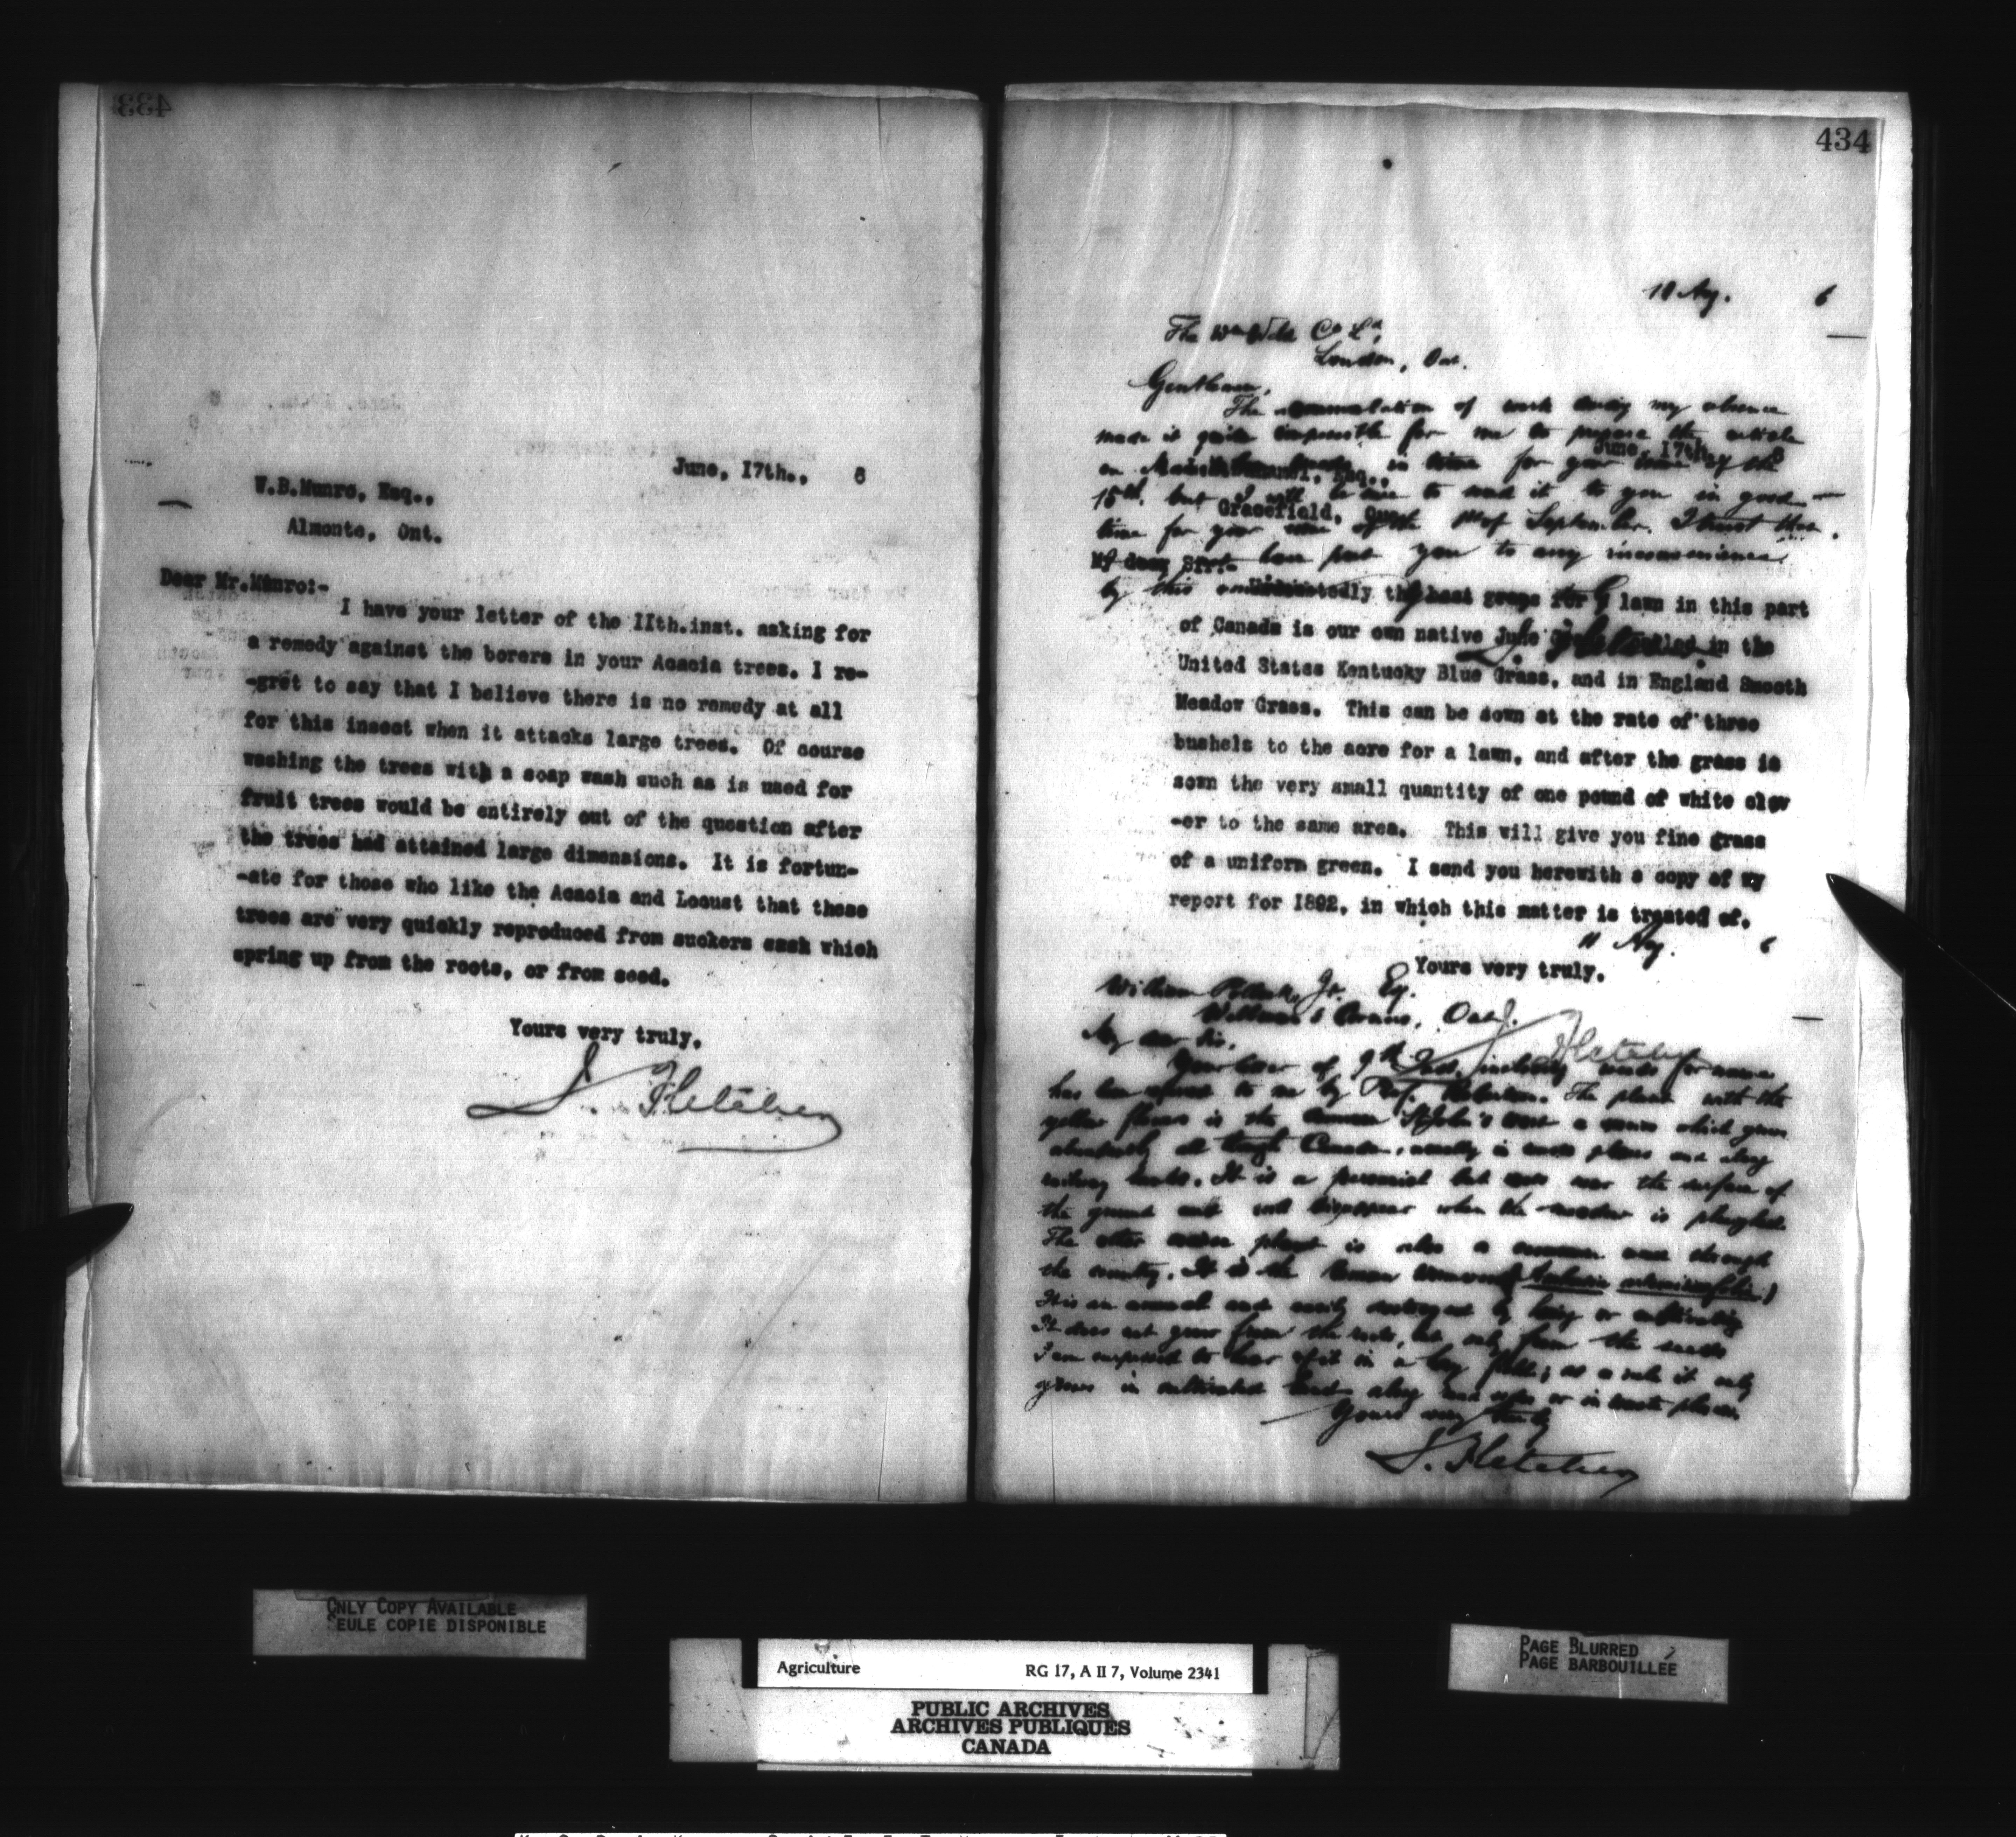 433
June, 17th., 6
W.B.Munro, Esq.,
Almonte, Ont.
Dear Mr.Munro:-
I have your letter of the IIth.inst. asking for
a remedy against the borers in your Acacia trees. I re-
-gret to say that I believe there is no remedy at all
for this insect when it attacks large trees. Of course
washing the trees with a soap wash such as is used for
fruit trees would be entirely out of the question after
the trees had attained large dimensions. It is fortun-
-ate for those who like the Acacia and Locust that these
trees are very quickly reproduced from suckers which
spring up from the roots, or from seed.
Yours very truly,
J. Fletcher
434
18 Aug. 6
The Wm Weld Co Ld,
London, Ont.
Gentlemen,
The accumulation of work during my absence
made it quite impossible for me to prepare the article
June, 17th., 6
on in time for your issue of the
15th. but I will be sure to send it to you in good
Gracefield, Que.
time for your issue of the 1st of September. I trust that
have put you to any inconvenience
My dear Sir:-
by this
Undoubtedly the best grass for a lawn in this part
of Canada is our own native June Grass, called in the
J. Fletcher
United States Kentucky Blue Grass, and in England Smooth
Meadow Grass. This can be sown at the rate of three
bushels to the acre for a lawn, and after the grass is
sown the very small quantity of one pound of white clov
-er to the same area. This will give you fine grass
of a uniform green. I send you herewith a copy of my
report for 1892, in which this matter is treated of.
11 Aug. 6
Yours very truly,
William Jr. Esq.
Ont.
J. Fletcher
My dear Sir,
Your letter of 9th Inst. inclosing weeds for name
has been to me by Prof. Robertson. The plant with the
yellow flowers is the common St John's wort a weed which grows
abundantly all through Canada, usually in waste places and along
railway banks. It is a perennial but roots near the surface of
the ground and will disappear when the meadow is ploughed.
The other plant is also a common weed through
the country. It is the Roman Wormwood (Ambrosia artemisiaefolia)
It is an annual and easily destroyed by hoeing or cultivating
It does not grow from the roots, but only from the seeds
I am surprised to hear of it in a hay field; as a rule it only
grows in cultivated land along road sides or in waste places.
Yours very truly
J. Fletcher
ONLY COPY AVAILABLE
SEULE COPIE DISPONIBLE
PAGE BLURRED
PAGE BARBOUILLEE
Agriculture RG 17, A II 7, Volume 2341
PUBLIC ARCHIVES
ARCHIVES PUBLIQUES
CANADA